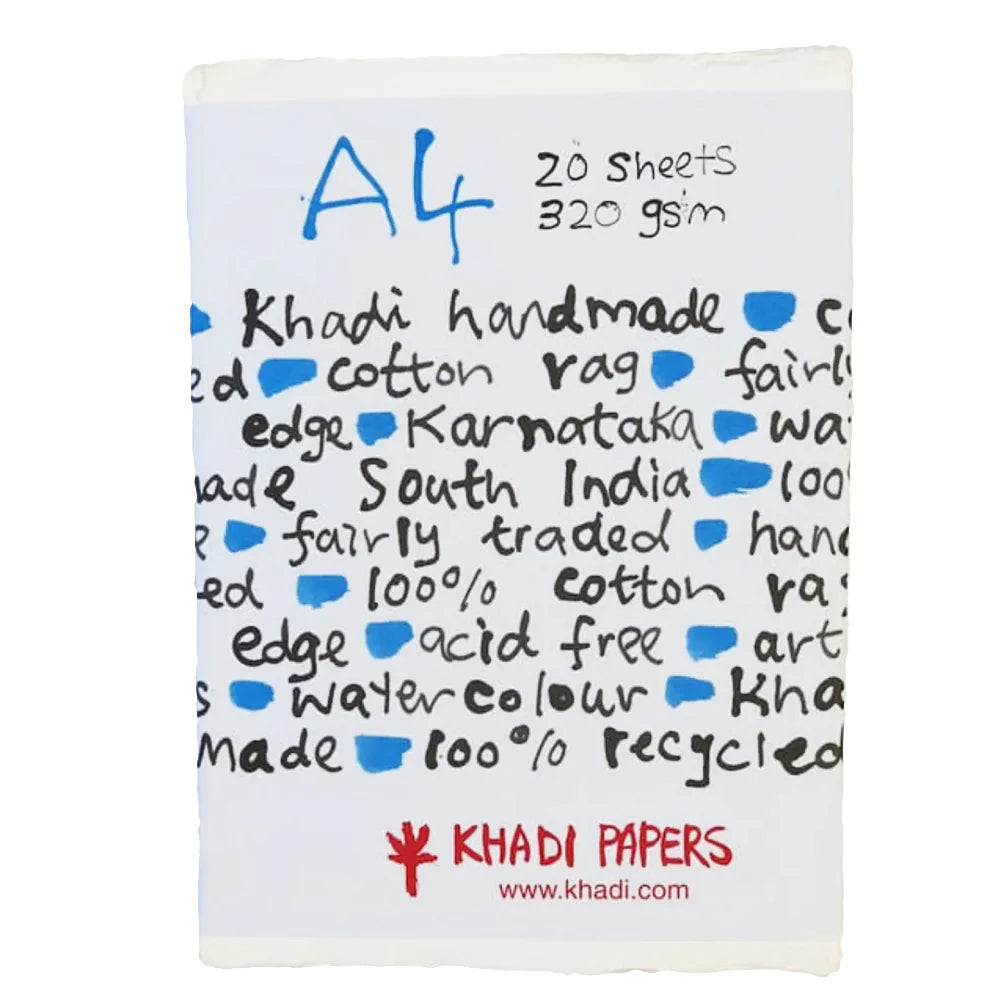 A4 20 sheets
320 gsm
Khadi handmade
ed cotton rag fairly
edge Karnataka
made South India 100
fairly traded
ed 100% cotton rag
edge acid free art
s watercolour Kha
made 100% recycled
KHADI PAPERS
www.khadi.com